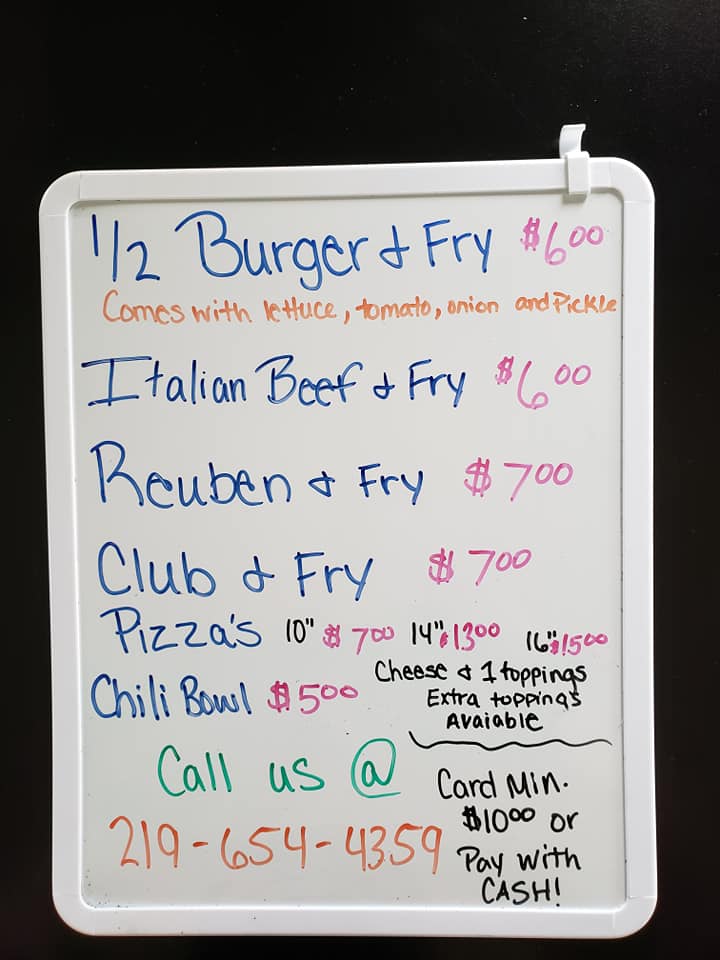 1/2 Burger & Fry $6.00
Comes with lettuce, tomato, onion and Pickle
Italian Beef & Fry $6.00
Reuben & Fry $7.00
Club & Fry $7.00
Pizza's 10" $7.00 14" $13.00 16" $15.00
Cheese & 1 toppings
Extra toppings
Avaiable
Chili Bowl $5.00
Call us @
219-654-4359
Card Min.
$10.00 or
Pay with
CASH!